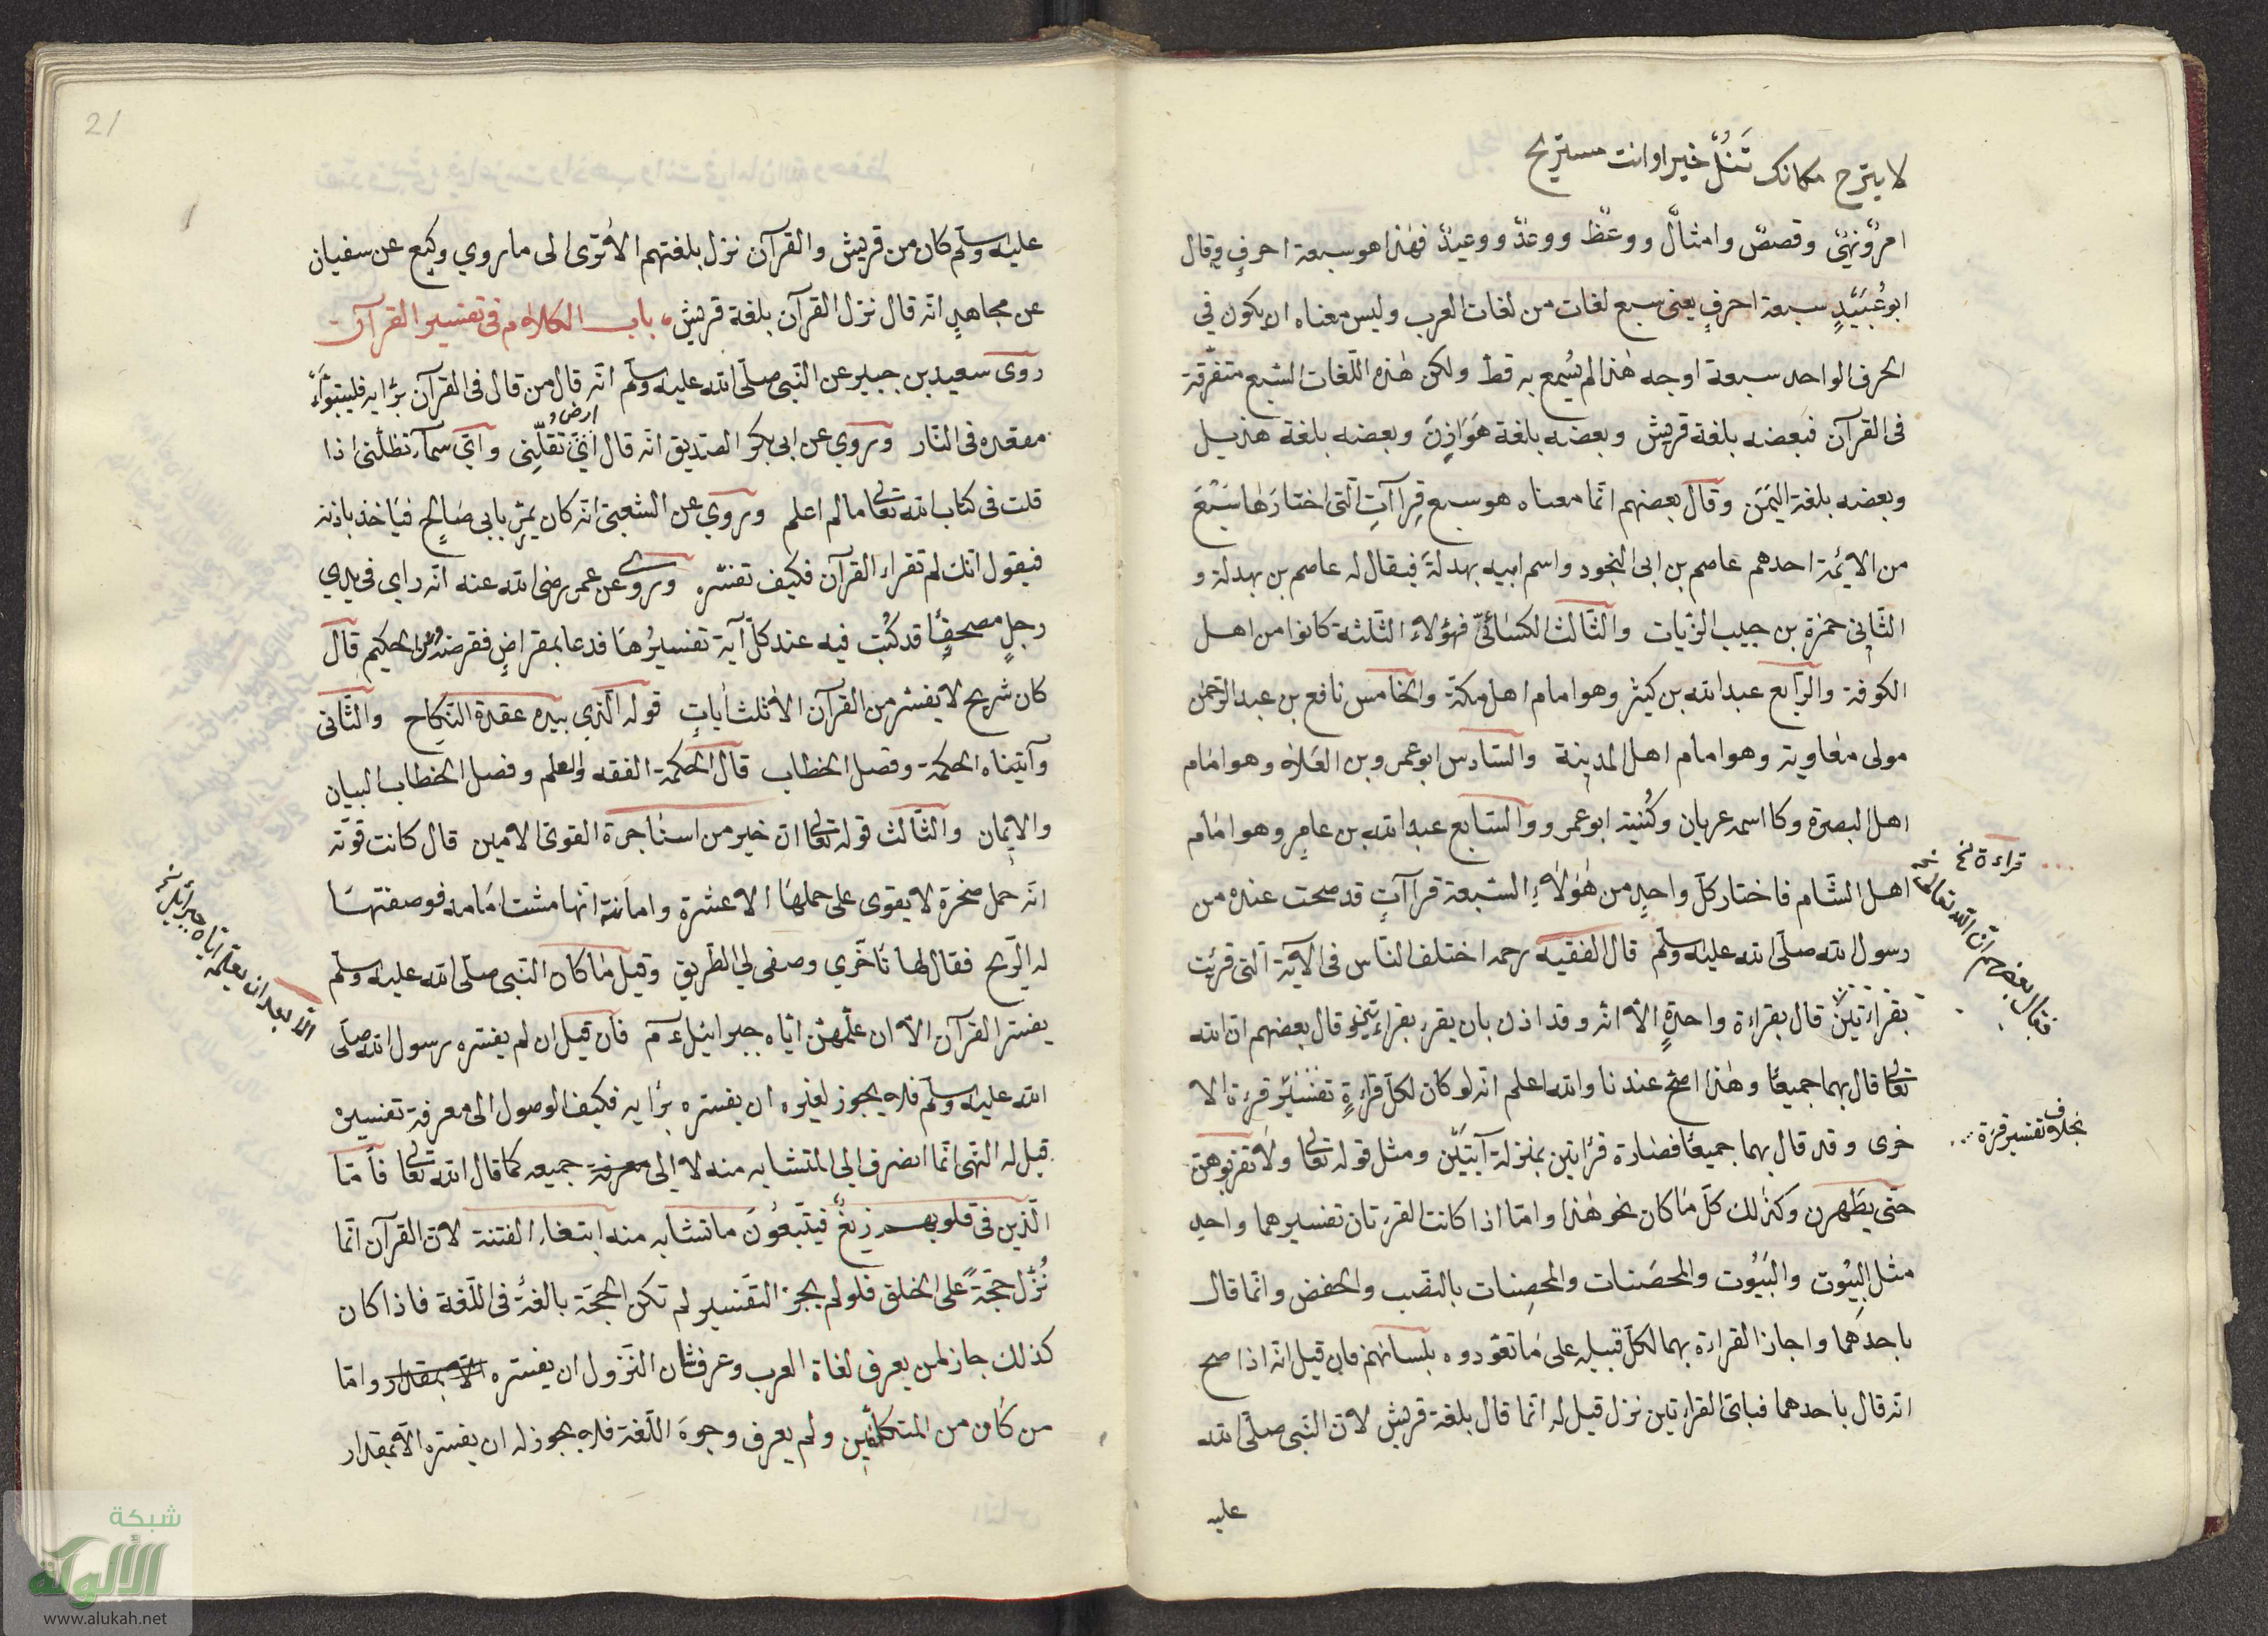 لا يترح مكانك تنل خيرا وانت مستريح
امر ونهى وقصص وامثال ووعظ ووعد ووعيد فهذا هو سبعة احرف وقال
ابو عبيد سبعة احرف يعنى سبع لغات من لغات العرب وليس معناه ان يكون في
الحرف الواحد سبعة اوجه هذا لم يسمع به قط ولكن هذه اللغات السبع متفرقة
فى القرآن فبعضه بلغة قريش وبعضه بلغة هوازن وبعضه بلغة هذيل
وبعضه بلغة اليمن وقال بعضهم انما معناه هو سبع قراآت التى اختارها سبع
من الائمة احدهم عاصم بن ابى النجود واسم ابيه بهدلة فيقال له عاصم بن بهدلة و
الثاني حمزة بن حبيب الزيات والثالث الكسائى فهؤلاء الثلثة كانوا من اهل
الكوفة والرابع عبد الله بن كثير وهو امام اهل مكة والخامس نافع بن عبد الرحمن
مولى معاوية وهو امام اهل المدينة والسادس ابو عمرو بن العلاء وهو امام
اهل البصرة وكا اسمه عريان وكنيته ابو عمرو والسابع عبد الله بن عامر وهو امام
اهل الشام فاختار كل واحد من هؤلاء السبعة قراآت قد صحت عنده من
رسول الله صلى الله عليه وسلم قال الفقيه رحمه اختلف الناس فى الآية التى قرئت
بقراءتين قال بقراءة واحدة الا انه وقد اذن بان يقرء بقراءتين وقال بعضهم ان الله
تعالى قال بهما جميعا وهذا اصح عندنا والله اعلم انه لو كان لكل قراءة تفسير قرءة الا
خرى وقد قال بهما جميعا فصارة قرائتين بمنزلة آيتين ومثل قوله تعالى ولا تقربوهن
حتى يطهرن وكذلك كل ما كان نحو هذا واما اذا كانت القرءتان تفسيرهما واحد
مثل البيوت والبيوت والمحصنات والمحصنات بالنصب والخفض وانما قال
باحدهما واجاز القراءة بهما لكل قبيلة على ما تعودوه بلسانهم فان قيل انه اذا صح
انه قال باحدهما فباى القراءتين نزل قيل له انما قال بلغة قريش لان النبى صلى الله
عليه
قراءة نخ
فقال بعضهم ان الله تعالى
بخلاف تفسير قرءة
21
عليه وسلم كان من قريش والقرآن نزل بلغتهم الا ترى الى ما روي وكيع عن سفيان
عن مجاهد انه قال نزل القرآن بلغة قريش باب الكلام فى تفسير القرآن
روى سعيد بن جبير عن النبى صلى الله عليه وسلم انه قال من قال فى القرآن برايه فليتبوأ
مقعده فى النار وروي عن ابى بكر الصديق انه قال اي ارض تقلنى واي سماء تظلنى اذا
قلت فى كتاب الله تعالى مالم اعلم وروي عن الشعبى انه كان يمر بابى صالح فياخذ باذنه
فيقول انك لم تقراء القرآن فكيف تفسره وروي عن عمر رضى الله عنه انه راي فى يدي
رجل مصحفا قد كتب فيه عند كل آية تفسيرها فدعا بمقراض فقرضه وعن الحكيم قال
كان شريح لا يفسر من القرآن الا ثلث ايات قوله الذي بيده عقدة النكاح والثانى
وآتيناه الحكمة وفصل الخطاب قال الحكمة الفقه والعلم وفصل الخطاب البيان
والايمان والثالث قوله تعالى ان خير من استاجرة القوى الامين قال كانت قوته
انه حمل صخرة لا يقوى على حملها الا عشرة وامانته انها مشت امامه فوصفتها
له الريح فقال لها تأخري وصفى لي الطريق وقيل ما كان النبى صلى الله عليه وسلم
يفسر القرآن الا ان علمهن اياه جبرائيل ءم فان قيل ان لم يفسره رسول الله صلى
الله عليه وسلم فلا يجوز لغيره ان يفسره برأيه فكيف الوصول الى معرفة تفسيره
قيل له النهى انما انصرف الى المتشابه منه لا الى معرفة جميعه كما قال الله تعالى فأما
الذين فى قلوبهم زيغ فيتبعون ما تشابه منه ابتغاء الفتنة لان القرآن انما
نزل حجة على الخلق فلو لم يجز التفسير لم تكن الحجة بالغة فى اللغة فاذا كان
كذلك جاز لمن يعرف لغاة العرب وعرف شان النزول ان يفسره الا بمقدار واما
من كان من المتكلمين ولم يعرف وجوه اللغة فلا يجوز له ان يفسره الا بمقدار
الا بعد ان يعلمه اياه جبرائيل
شبكة
الألوكة
www.alukah.net